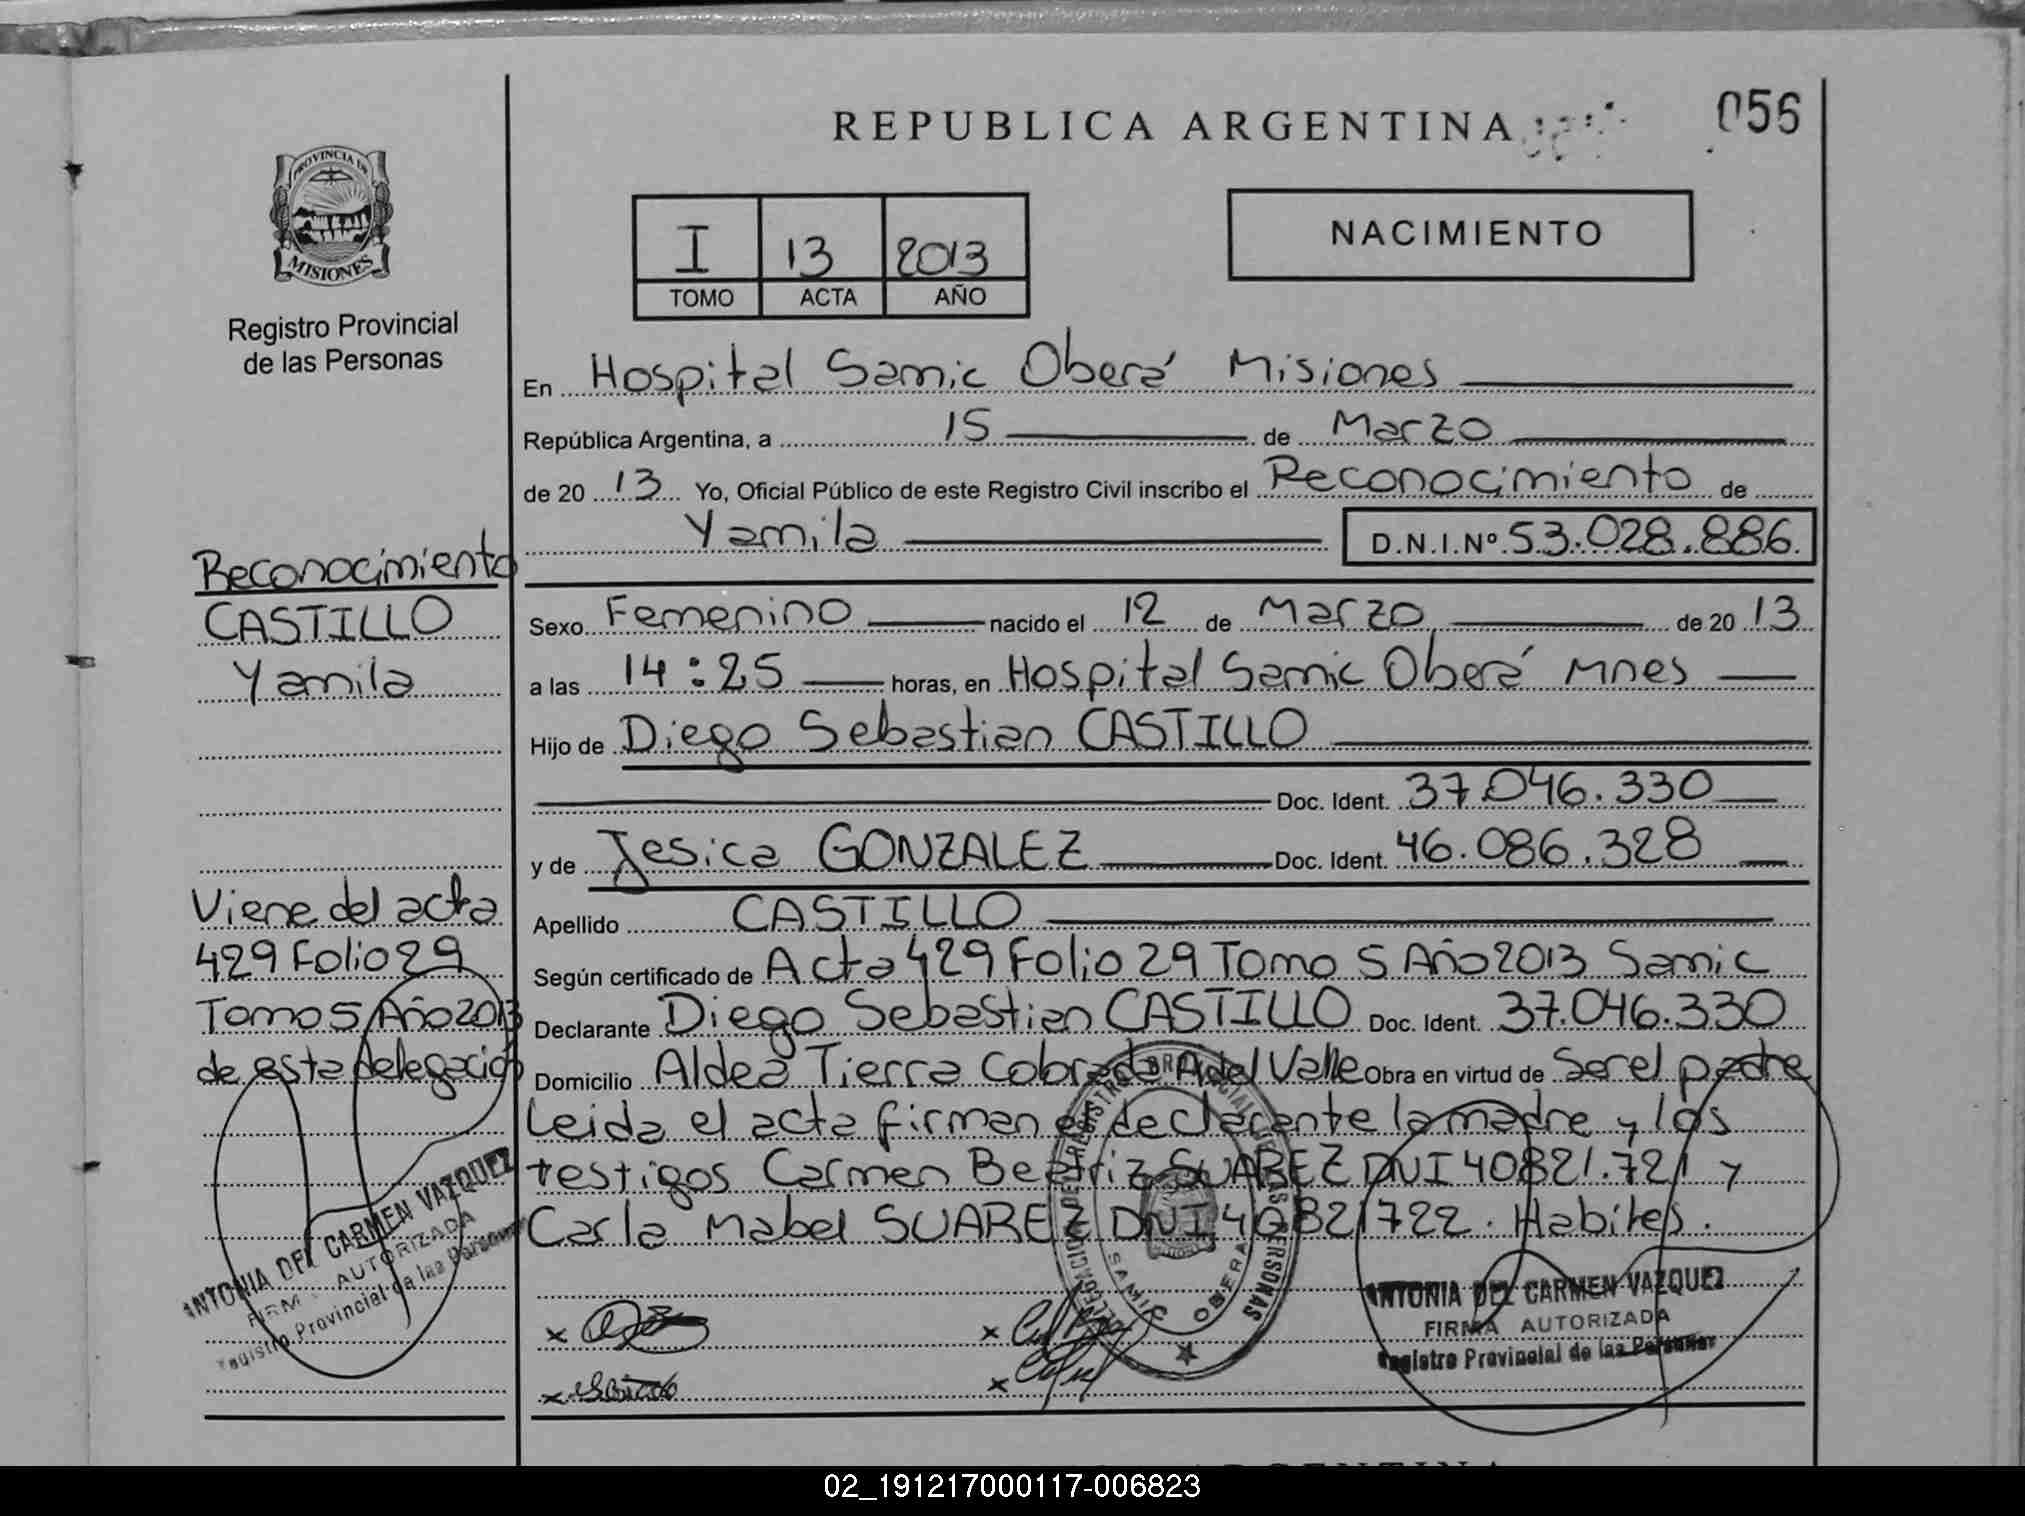 REPUBLICA ARGENTINA
056
PROVINCIA DE
MISIONES
Registro Provincial
de las Personas
I 13 2013
TOMO ACTA AÑO
NACIMIENTO
En Hospital Samic Oberá Misiones
República Argentina, a 15 de Marzo
de 20 13 Yo, Oficial Público de este Registro Civil inscribo el Reconocimiento de
Yamila D.N.I.Nº 53.028.886
Sexo Femenino nacido el 12 de Marzo de 20 13
a las 14:25 horas, en Hospital Samic Oberá Mnes
Hijo de Diego Sebastian CASTILLO
Doc. Ident. 37.046.330
y de Jesica GONZALEZ Doc. Ident. 46.086.328
Apellido CASTILLO
Según certificado de Acta 429 Folio 29 Tomo 5 Año 2013 Samic
Declarante Diego Sebastian CASTILLO Doc. Ident. 37.046.330
Domicilio Aldea Tierra Cobrada A del Valle Obra en virtud de Ser el padre
Leida el acta firman el declarante la madre y los
testigos Carmen Beatriz SUAREZ DNI 40821.721 y
Carla Mabel SUAREZ DNI 40821722. Habiles.
Reconocimiento
CASTILLO
Yamila
Viene del acta
429 Folio 29
Tomo 5 Año 2013
de esta delegación
ANTONIA DEL CARMEN VAZQUEZ
FIRMA AUTORIZADA
Registro Provincial de las Personas
SAMIC OBERA
ANTONIA DEL CARMEN VAZQUEZ
FIRMA AUTORIZADA
Registro Provincial de las Personas
02_191217000117-006823